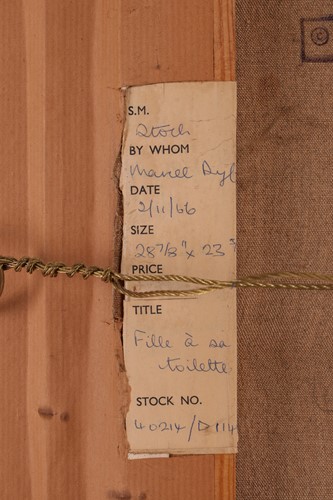 S.M.
Stock
BY WHOM
Marcel Dyf
DATE
2/11/66
SIZE
28 7/8" x 23
PRICE
TITLE
Fille à sa
toilette
STOCK NO.
40214/D114